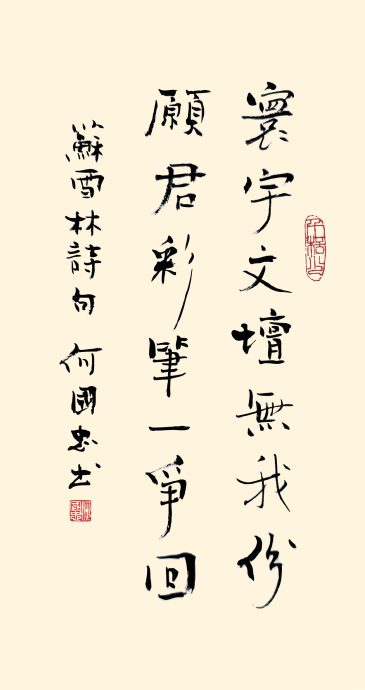 寰宇文壇無我份
願君彩筆一爭回
蘇雪林詩句 何國忠书